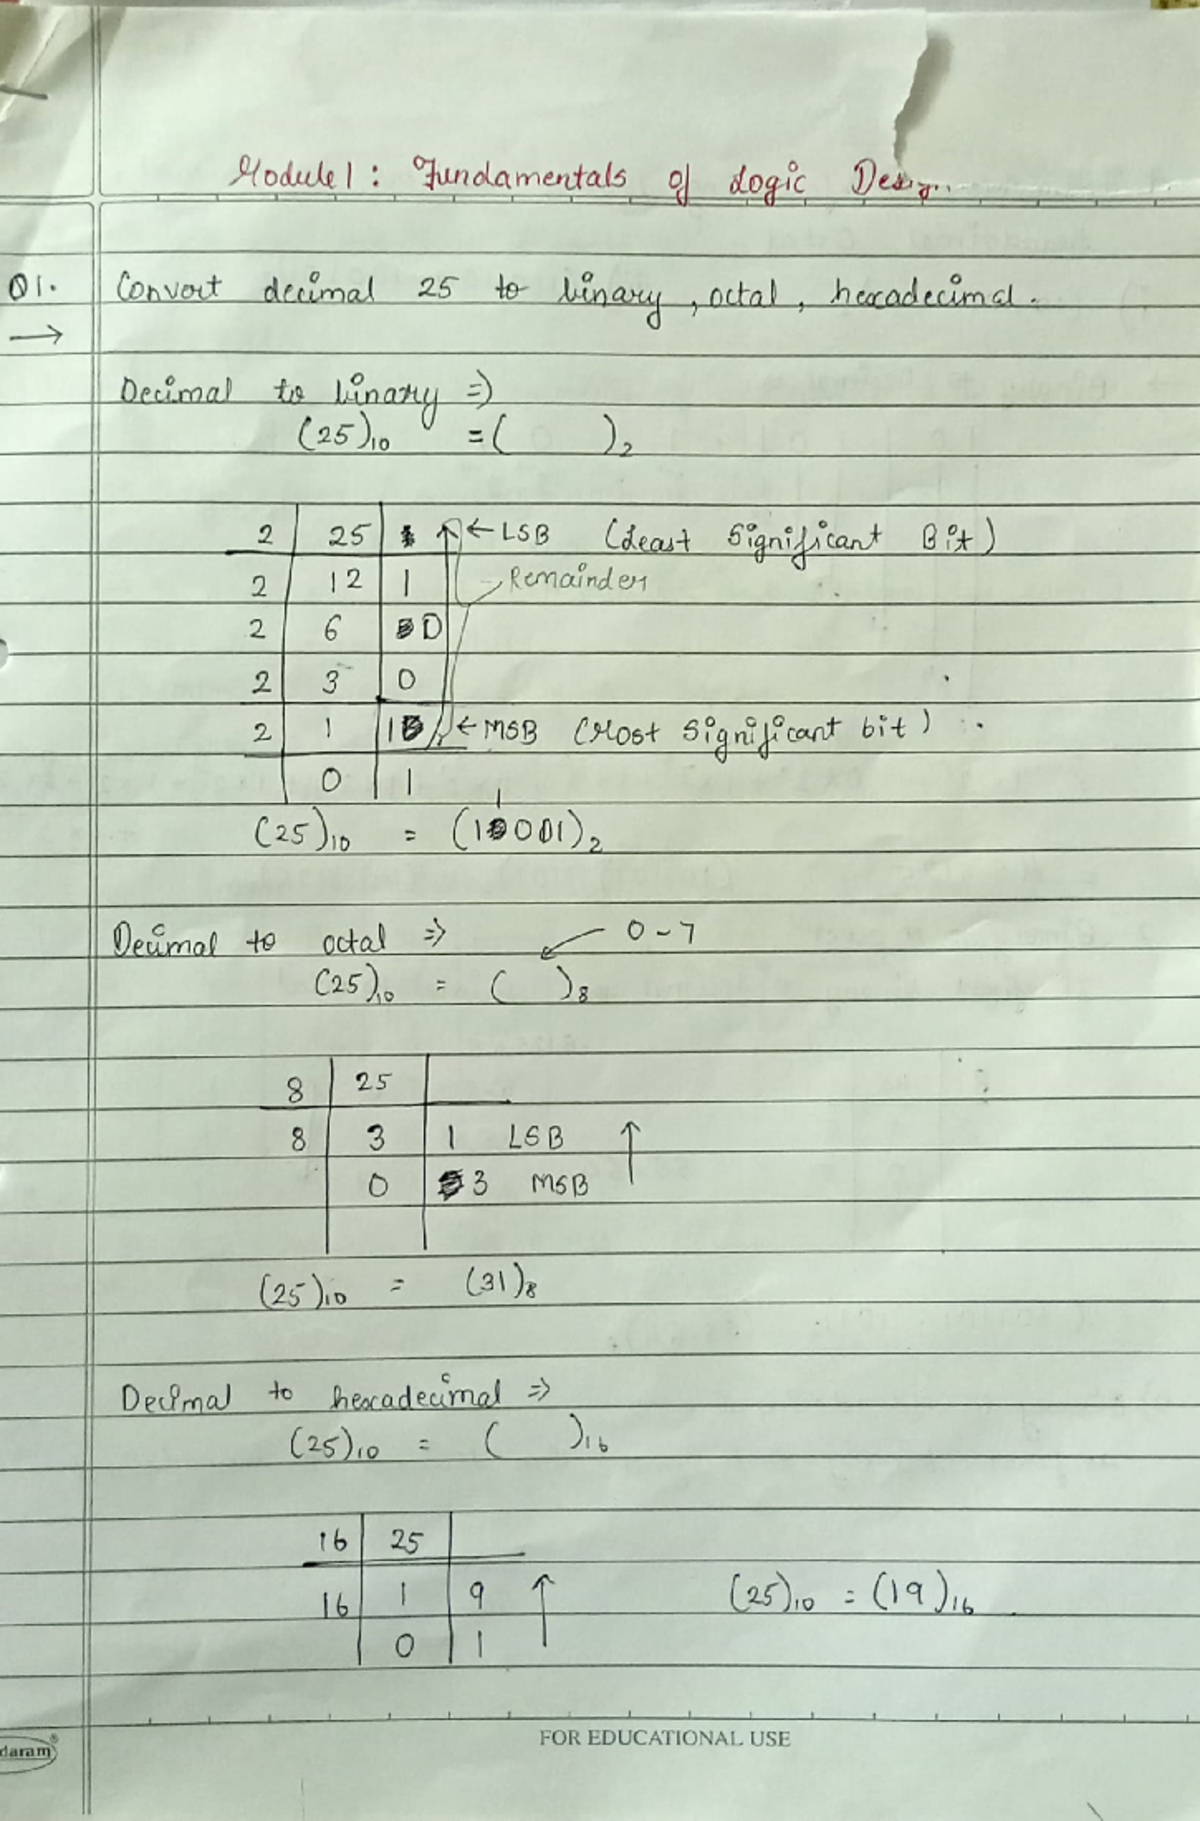 Module 1 : Fundamentals of Logic
Q1. Convert decimal 25 to binary, octal, hexadecimal.
→
Decimal to binary ⇒
(25)10 = ( )2
2 25 ← LSB (Least Significant Bit)
2 12 1 Remainder
2 6 0
2 3 0
2 1 1 ← MSB (Most Significant bit)
0 1
(25)10 = (11001)2
Decimal to octal ⇒ 0-7
(25)10 = ( )8
8 25
8 3 1 LSB ↑
0 3 MSB
(25)10 = (31)8
Decimal to hexadecimal ⇒
(25)10 = ( )16
16 25
16 1 9 ↑ (25)10 = (19)16
0 1
FOR EDUCATIONAL USE
daram®